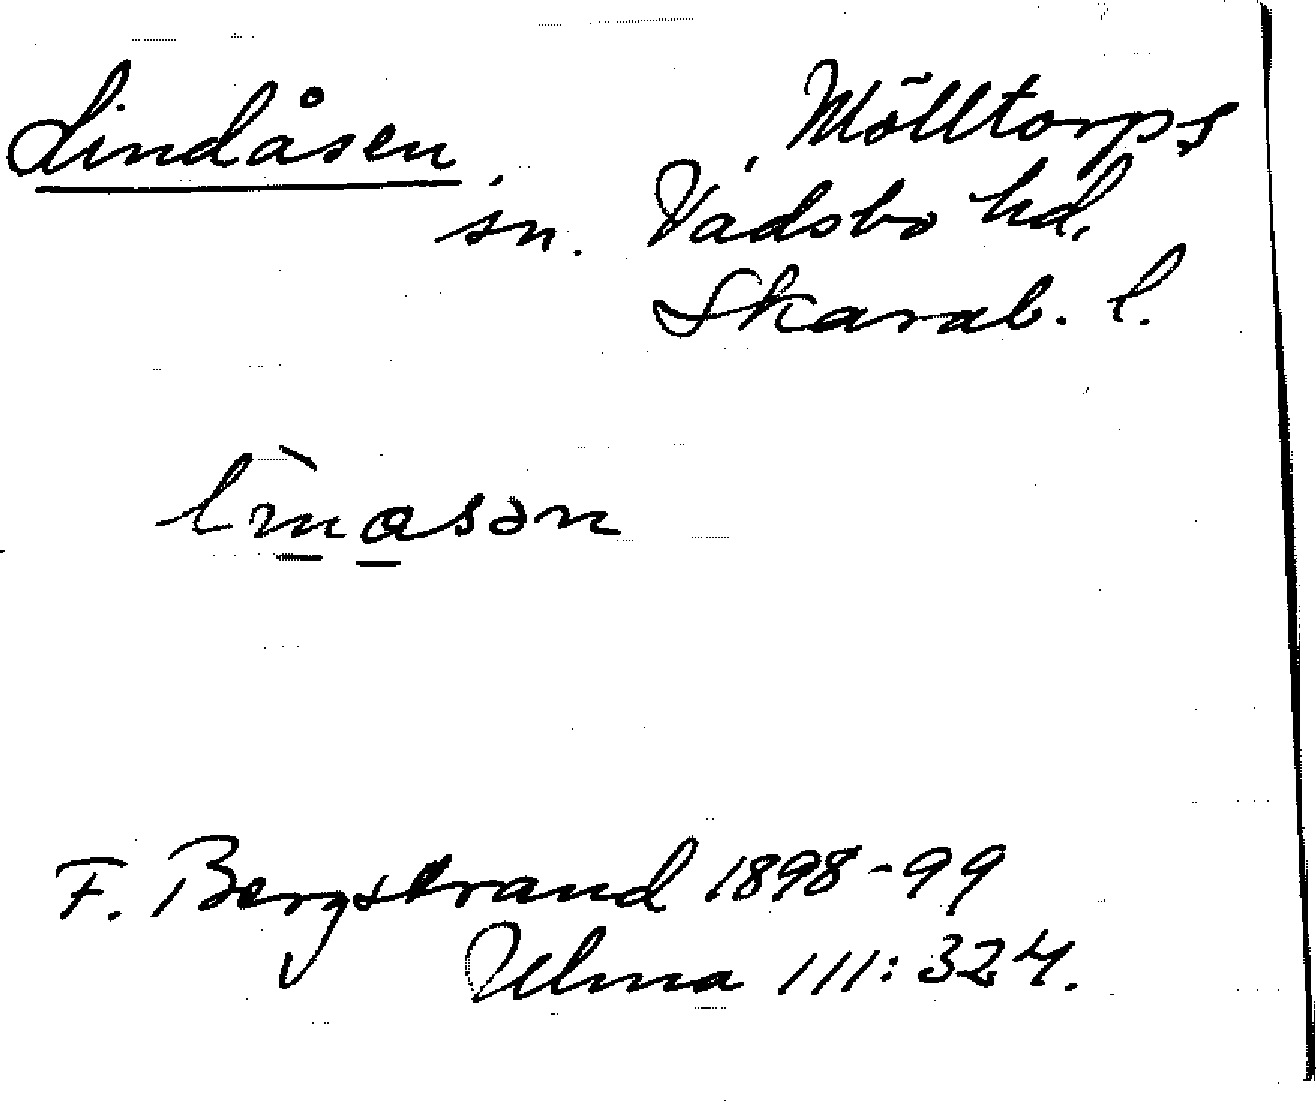 Lindåsen, Mölltorps
sn. Vadsbo hd,
Skarab. l.
F. Bergstrand 1898-99
Ulma 111: 324.